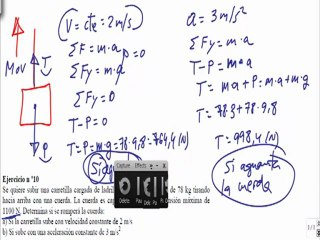 V = cte = 2m/s
ΣF = m·a
a = 0
ΣFy = m·a
ΣFy = 0
T - P = 0
T = P = m·g = 78·9,8 = 764,4 (N)
Si
a = 3 m/s²
ΣFy = m·a
T - P = m·a
T = ma + P = m·a + m·g
T = 78·3 + 78·9,8
T = 998,4 (N)
Si aguanta
la cuerda
MOV
T
P
Capture Effects
Ejercicio nº10
Se quiere subir una carretilla cargada de ladrill de 78 kg tirando
hacia arriba con una cuerda. La cuerda es cap tensión máxima de
1100 N. Determina si se romperá la cuerda:
a) Si la carretilla sube con velocidad constante de 2 m/s
b) Si sube con una aceleración constante de 3 m/s²